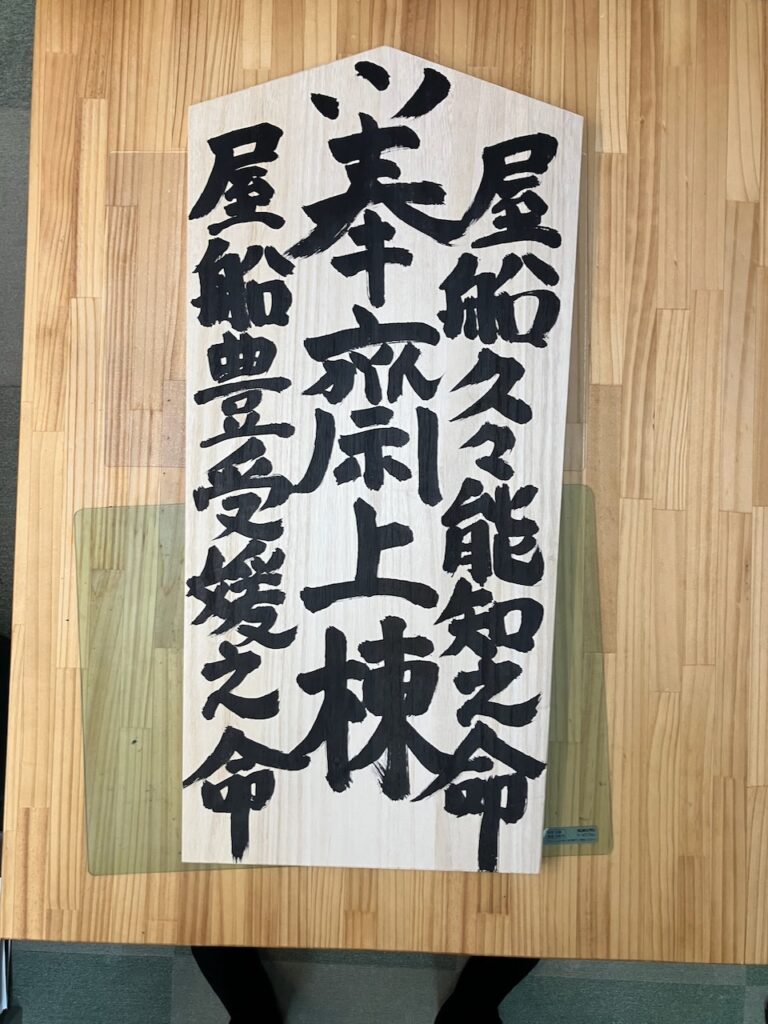 屋船久々能知之命
奉齋上棟
屋船豊受媛之命
KOKUYO